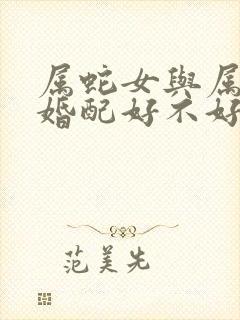 属蛇女與属
婚配好不好
范美先